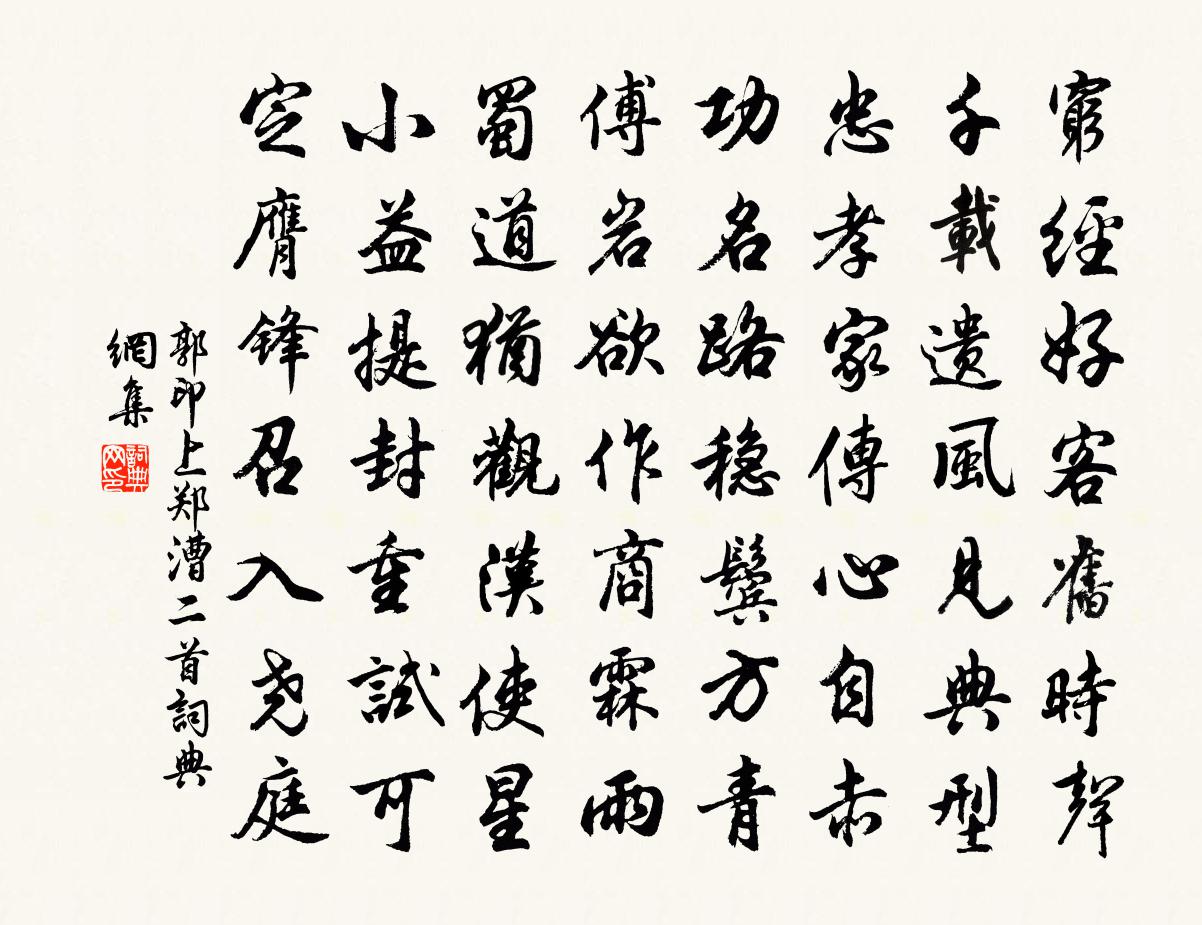 窮經好客舊時聲
千載遗風見典型
忠孝家傳心自赤
功名路穏鬓方青
傅岩欲作商霖雨
蜀道猶觀漢使星
小益提封重試可
定膺锋召入尧庭
郭印上郑漕二首詞典
網集
詞典网印